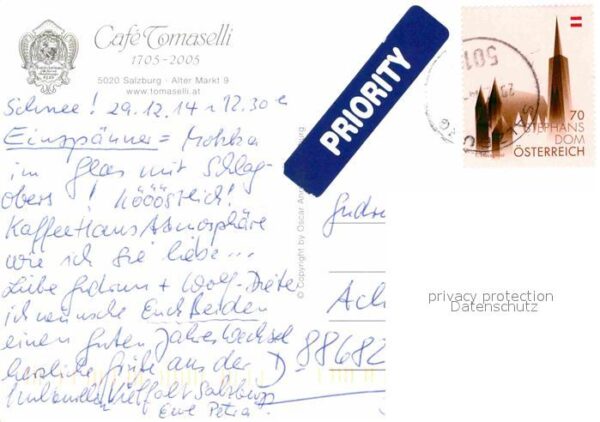 Café Tomaselli
1705-2005
5020 Salzburg · Alter Markt 9
www.tomaselli.at
Schnee! 29.12.14 12.30
Einspänner = Mokka
im Glas mit Schlag-
obers! Köööstlich!
Kaffeehaus Atmosphäre
wie ich sie liebe...
Liebe Gudrun + Wolf-Dieter
ich wünsche Euch Beiden
einen guten Jahreswechsel
herzliche Grüße aus der
Kulturellen Vielfalt Salzburgs
Eure Petra
PRIORITY
© Copyright by Oscar
70
STEPHANS
DOM
ÖSTERREICH
Gudru
Ach
D-88682
privacy protection
Datenschutz